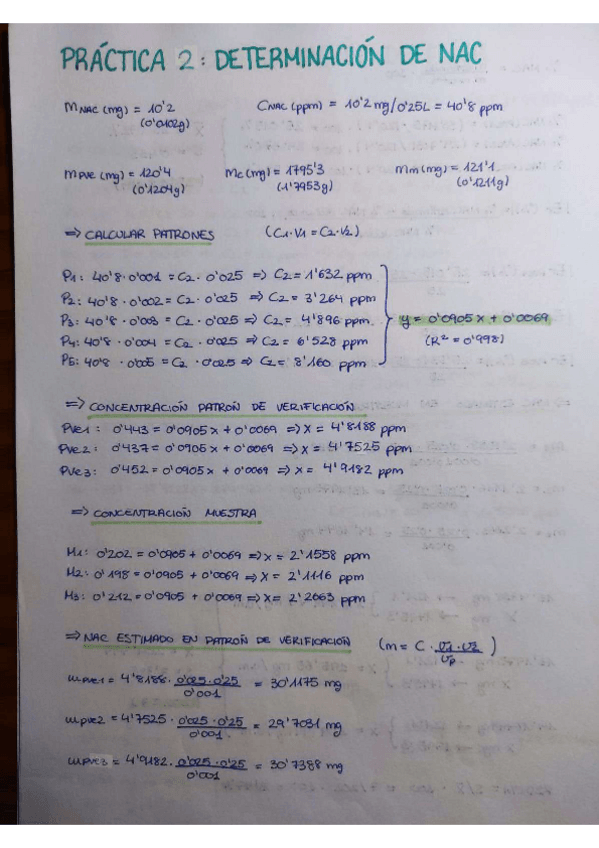 PRÁCTICA 2: DETERMINACIÓN DE NAC
MNAC (mg) = 10'2 CNAC (ppm) = 10'2 mg/0'25L = 40'8 ppm
(0'0102g)
MPVE (mg) = 120'4 Mc (mg) = 1795'3 Mm (mg) = 121'1
(0'1204g) (1'7953g) (0'1211g)
=> CALCULAR PATRONES (C1·V1 = C2·V2)
P1: 40'8 · 0'001 = C2 · 0'025 => C2 = 1'632 ppm
P2: 40'8 · 0'002 = C2 · 0'025 => C2 = 3'264 ppm
P3: 40'8 · 0'003 = C2 · 0'025 => C2 = 4'896 ppm. y = 0'0905x + 0'0069
P4: 40'8 · 0'004 = C2 · 0'025 => C2 = 6'528 ppm (R² = 0'998)
P5: 40'8 · 0'005 = C2 · 0'025 => C2 = 8'160 ppm
=> CONCENTRACIÓN PATRÓN DE VERIFICACIÓN
PVE1: 0'443 = 0'0905x + 0'0069 => x = 4'8188 ppm
PVE2: 0'437 = 0'0905x + 0'0069 => x = 4'7525 ppm
PVE3: 0'452 = 0'0905x + 0'0069 => x = 4'9182 ppm
=> CONCENTRACIÓN MUESTRA
M1: 0'202 = 0'0905 + 0'0069 => x = 2'1558 ppm
M2: 0'198 = 0'0905 + 0'0069 => x = 2'1116 ppm
M3: 0'212 = 0'0905 + 0'0069 => x = 2'2663 ppm
=> NAC ESTIMADO EN PATRÓN DE VERIFICACIÓN (m = C · V1·V2/Vp)
mPVE1 = 4'8188 · 0'025·0'25/0'001 = 30'1175 mg
mPVE2 = 4'7525 · 0'025·0'25/0'001 = 29'7031 mg
mPVE3 = 4'9182 · 0'025·0'25/0'001 = 30'7388 mg